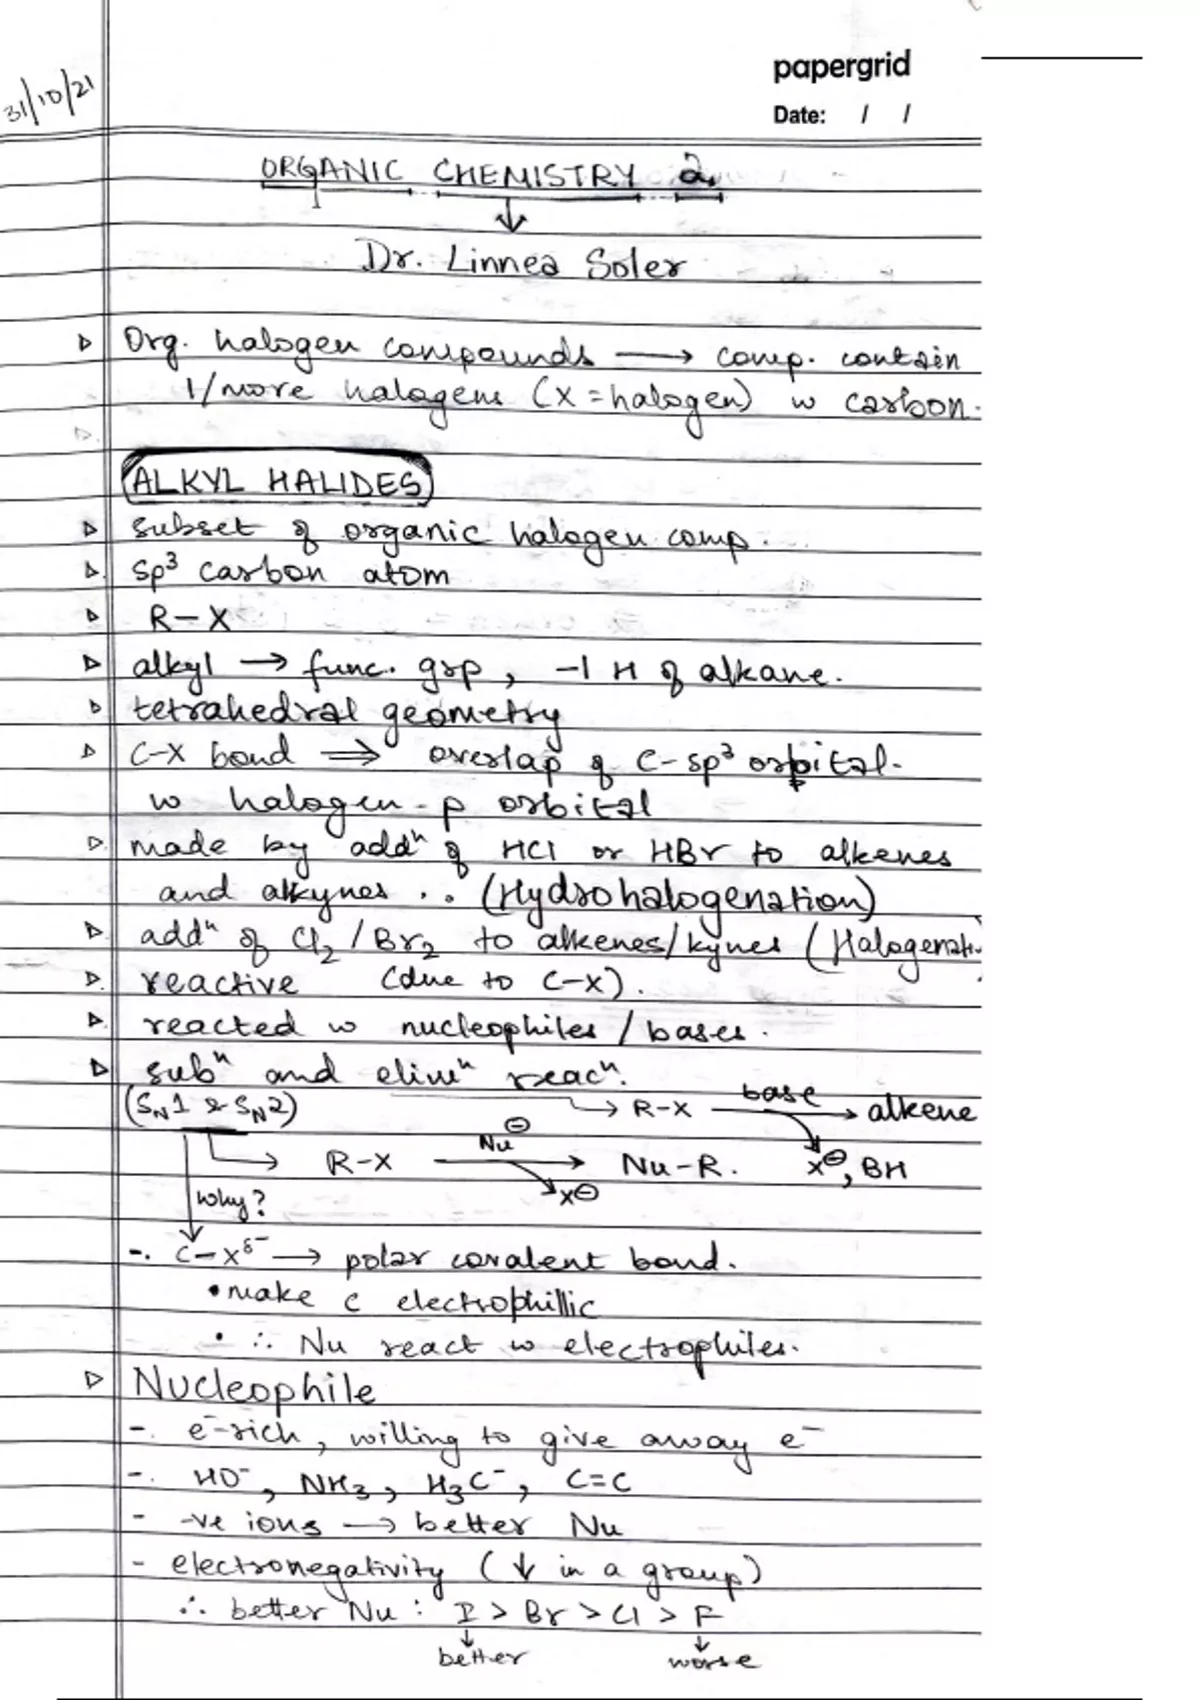 papergrid
31/10/21
Date: / /
ORGANIC CHEMISTRY 2.
↓
Dr. Linnea Soler
▷ Org. halogen compounds → comp. contain
1/more halogens (X = halogen) w carbon.
▷.
ALKYL HALIDES
▷ subset of organic halogen comp.
▷. sp³ carbon atom
▷ R–X
▷ alkyl → func. grp, -1 H of alkane.
▷ tetrahedral geometry
▷ C-X bond ⟹ overlap of C-sp³ orbital.
w halogen-p orbital
▷. made by addⁿ of HCl or HBr to alkenes
and alkynes .. (Hydrohalogenation)
▷. addⁿ of Cl₂ / Br₂ to alkenes/kynes (Halogenati
▷. reactive (due to C-X).
▷. reacted w nucleophiles / bases.
▷ subⁿ and elimⁿ reacⁿ.
(SN1 & SN2) → R-X base → alkene
X⊖, BH
→ R-X Nu⊖ → Nu-R.
X⊖
Why?
-. C-Xδ- → polar covalent bond.
• make C electrophillic
• ∴ Nu react w electrophiles.
▷ Nucleophile
-. e⁻-rich, willing to give away e⁻
-. HO⁻, NH₃, H₃C⁻, C=C
- -ve ions → better Nu
- electronegativity (↓ in a group)
∴ better Nu : I > Br > Cl > F
↓ ↓
better worse